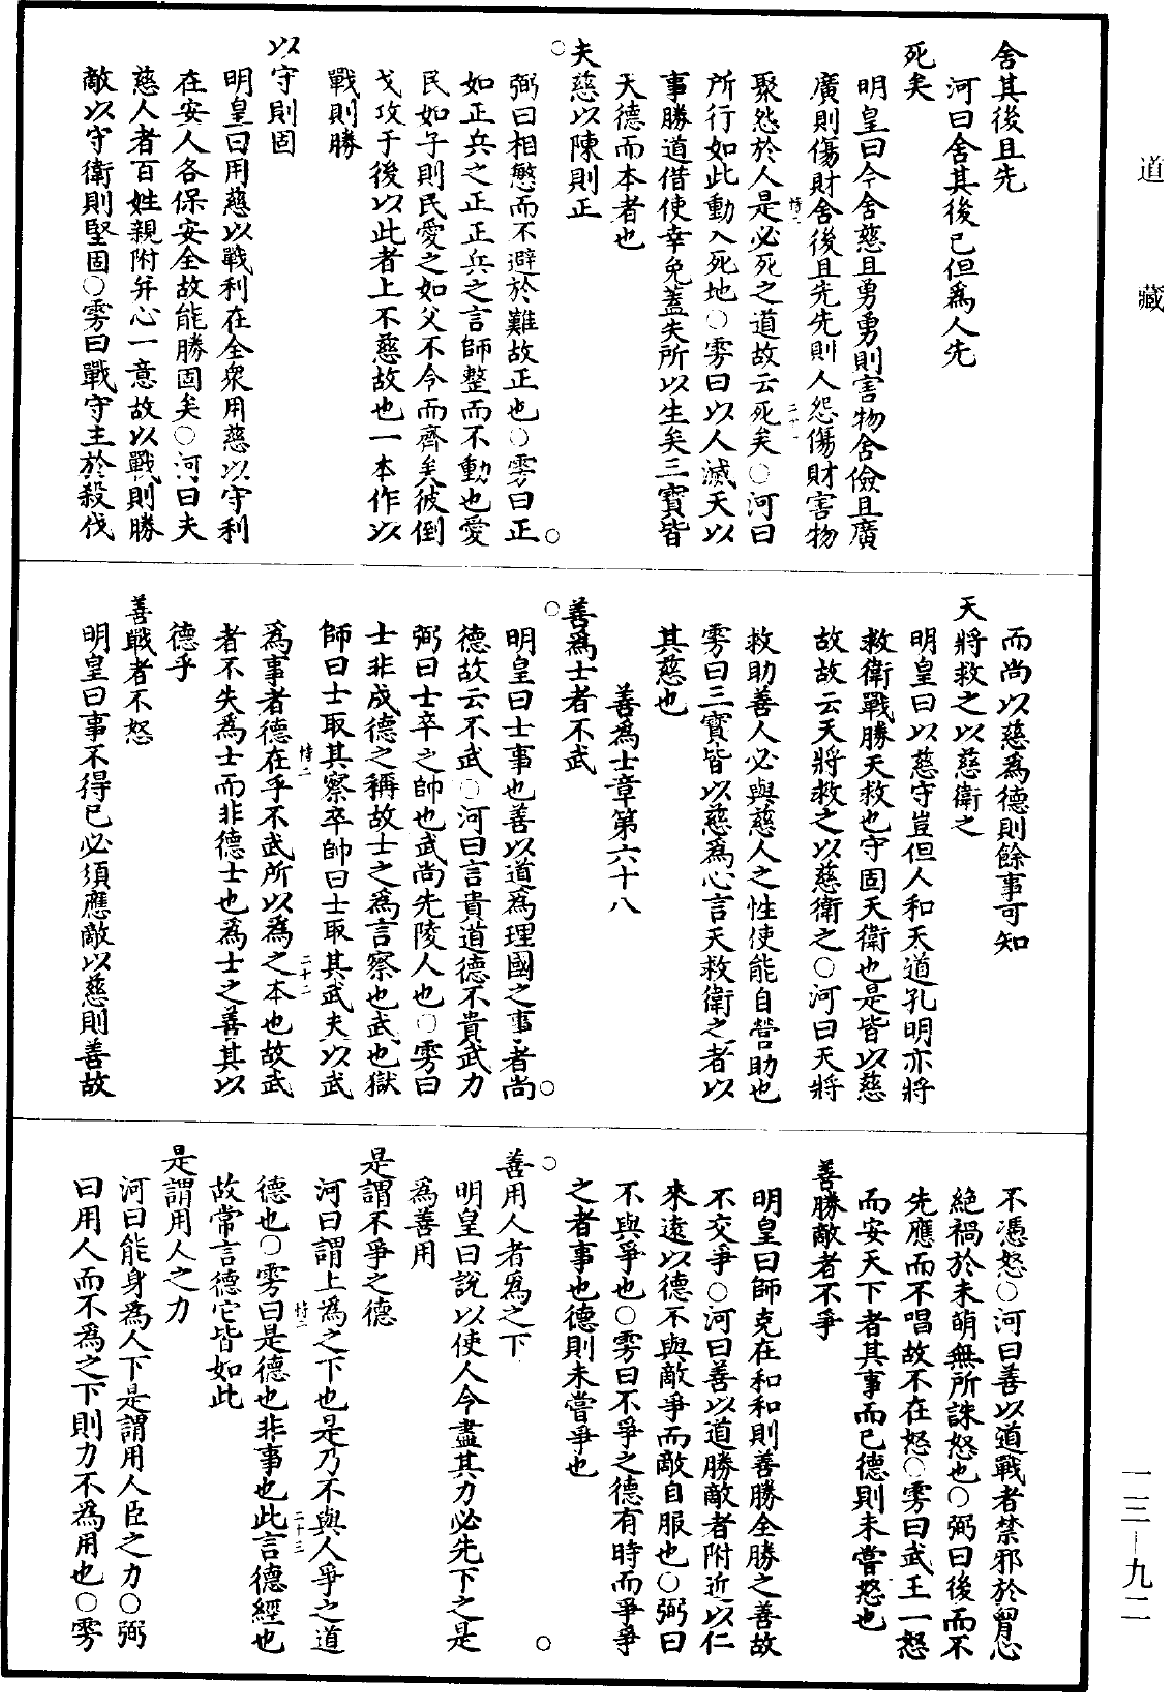 道藏
舍其後且先
河曰舍其後已但爲人先
死矣
明皇曰今舍慈且勇勇則害物舍儉且廣
廣則傷財舍後且先先則人怨傷財害物
聚怨於人是必死之道故云死矣○河曰
所行如此動入死地○雱曰以人滅天以
事勝道借使幸免蓋失所以生矣三寶皆
天德而本者也
夫慈以陳則正
弼曰相慜而不避於難故正也○雱曰正
如正兵之正正兵之言師整而不動也愛
民如子則民愛之如父不令而齊矣彼倒
戈攻于後以此者上不慈故也一本作以
戰則勝
以守則固
明皇曰用慈以戰利在全衆用慈以守利
在安人各保安全故能勝固矣○河曰夫
慈人者百姓親附并心一意故以戰則勝
敵以守衛則堅固○雱曰戰守主於殺伐
而尚以慈爲德則餘事可知
天將救之以慈衛之
明皇曰以慈守豈但人和天道孔明亦將
救衛戰勝天救也守固天衛也是皆以慈
故故云天將救之以慈衛之○河曰天將
救助善人必與慈人之性使能自營助也
雱曰三寶皆以慈爲心言天救衛之者以
其慈也
善爲士章第六十八
善爲士者不武
明皇曰士事也善以道爲理國之事者尚
德故云不武○河曰言貴道德不貴武力
弼曰士卒之帥也武尚先陵人也○雱曰
士非成德之稱故士之爲言察也武也獄
師曰士取其察卒帥曰士取其武夫以武
爲事者德在乎不武所以爲之本也故武
者不失爲士而非德士也爲士之善其以
德乎
善戰者不怒
明皇曰事不得已必須應敵以慈則善故
不憑怒○河曰善以道戰者禁邪於胷心
絕禍於未萌無所誅怒也○弼曰後而不
先應而不唱故不在怒○雱曰武王一怒
而安天下者其事而已德則未嘗怒也
善勝敵者不爭
明皇曰師克在和和則善勝全勝之善故
不交爭○河曰善以道勝敵者附近以仁
來遠以德不與敵爭而敵自服也○弼曰
不與爭也○雱曰不爭之德有時而爭爭
之者事也德則未嘗爭也
善用人者爲之下
明皇曰說以使人令盡其力必先下之是
爲善用
是謂不爭之德
河曰謂上爲之下也是乃不與人爭之道
德也○雱曰是德也非事也此言德經也
故常言德它皆如此
是謂用人之力
河曰能身爲人下是謂用人臣之力○弼
曰用人而不爲之下則力不爲用也○雱
一三—九二